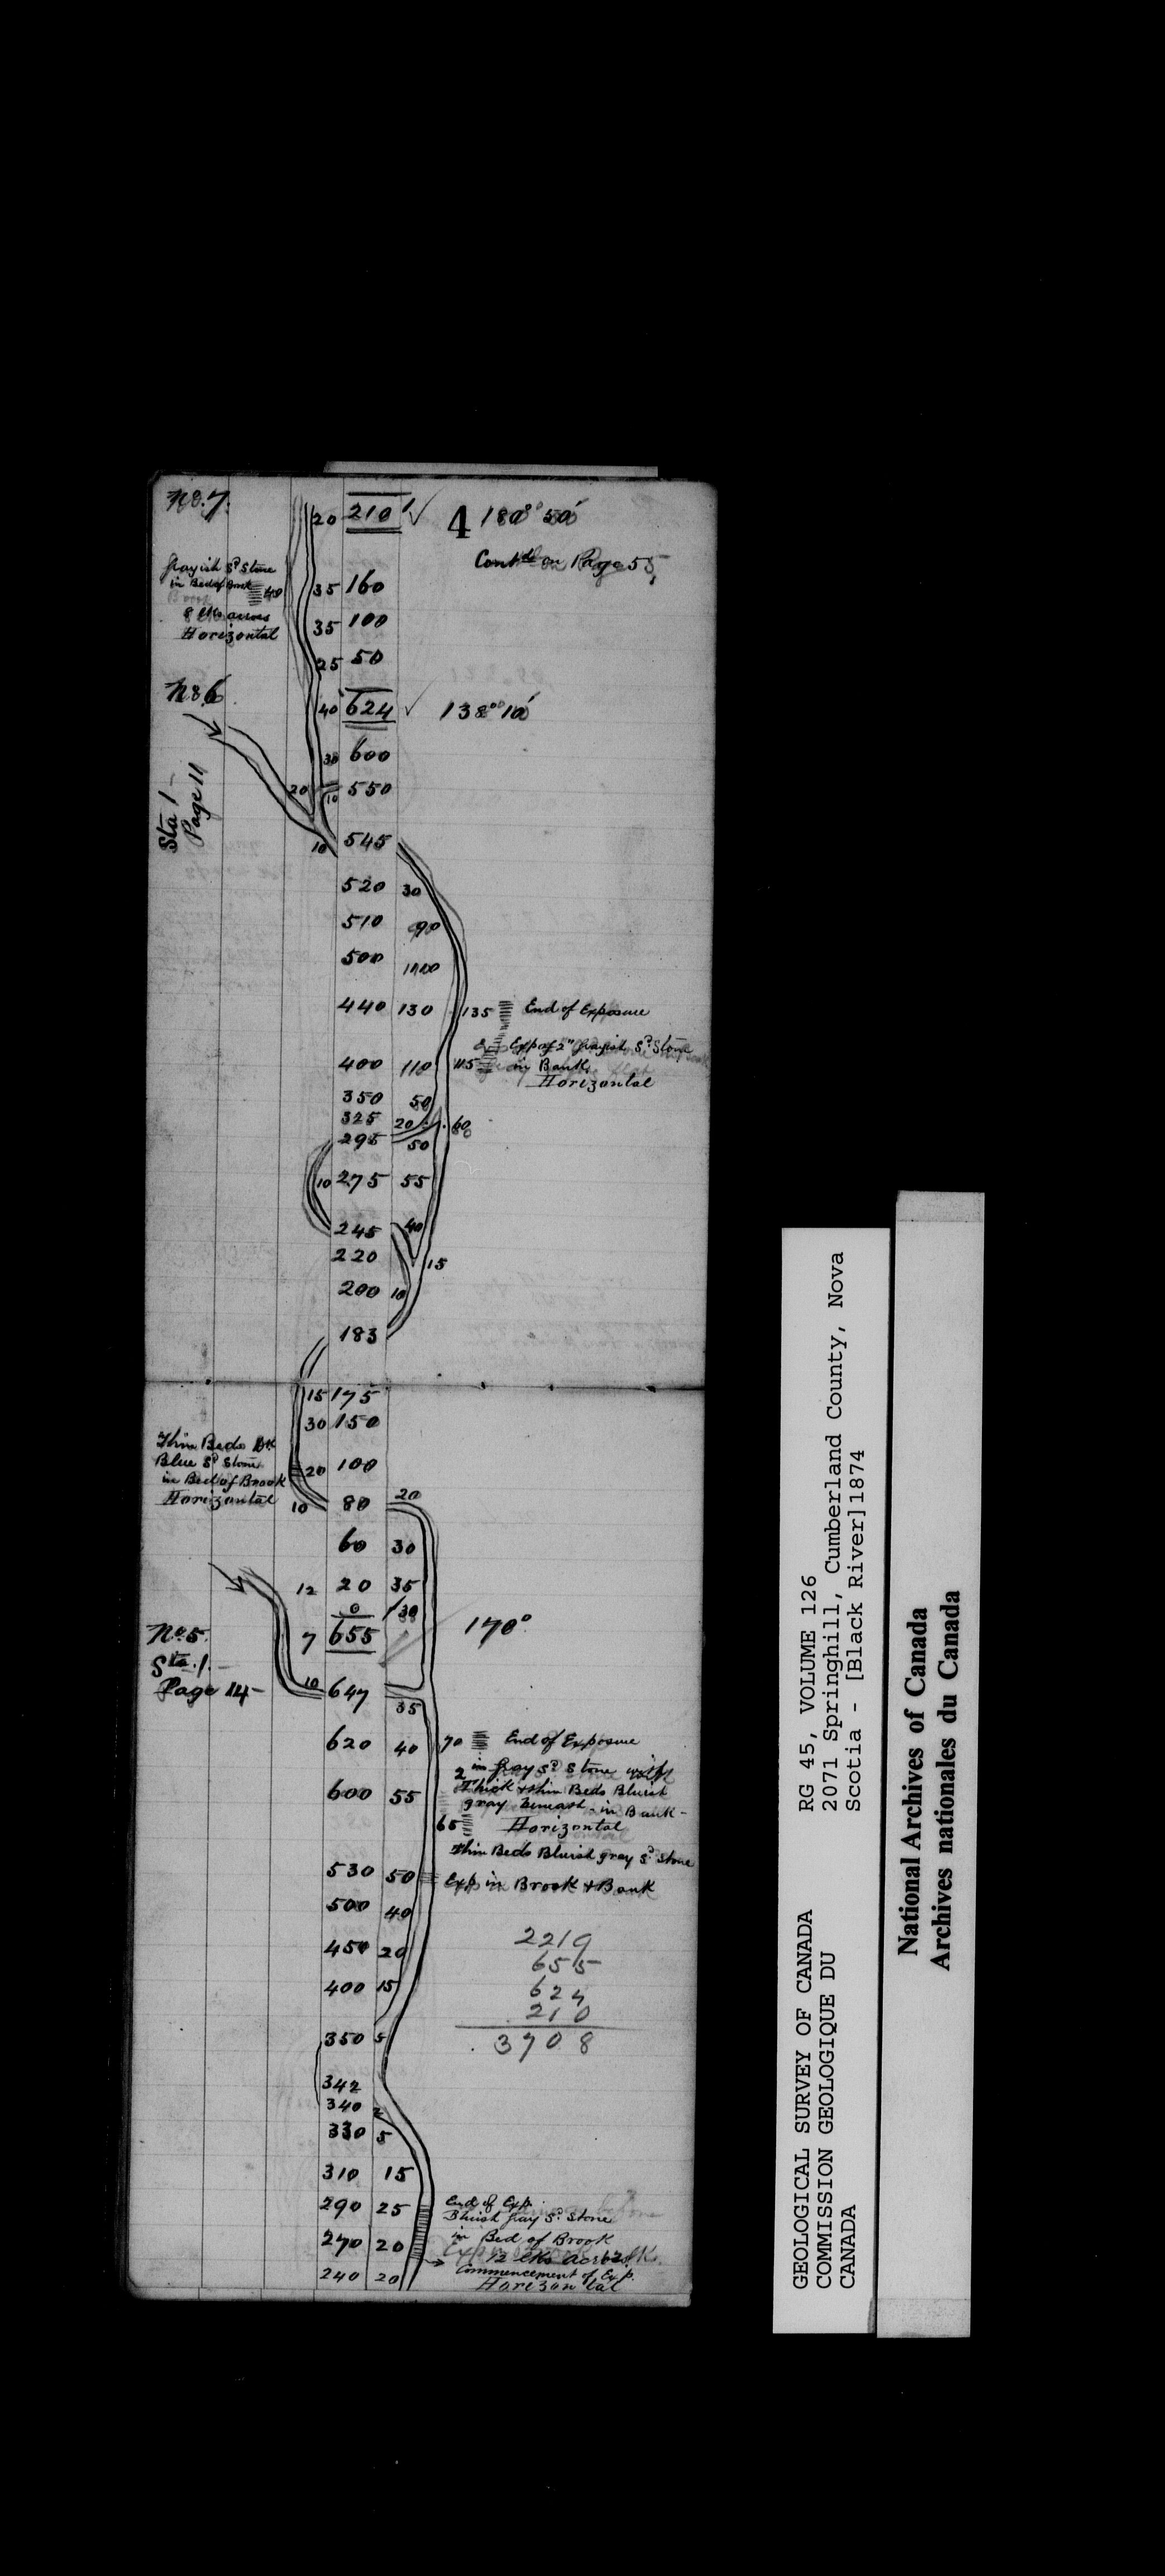 No. 7.
20 210 1 ✓ 4 180° 50'
Contd on Page 5
Grayish Sd Stone
in Bed of Brook
40
8 lks across
Horizontal
35 160
35 100
25 50
No 6
40 624 ✓ 138° 10'
30 600
20 10 550
Sta 1 –
Page 11
10 545
520 30
510 90
500 100
440 130 135 End of Exposure
Exp of 2" Grayish Sd Stone
400 110 115 in Bank
Horizontal
350 50
325 20 60
295 50
10 275 55
245 40
220 15
200 10
183
15 175
30 150
Thin Beds Dk
Blue Sd Stone
in Bed of Brook
Horizontal
20 100
10 80 20
60 30
12 20 35
0 30
No. 5.
Sta. 1. –
Page 14 –
7 655 170°
10 647 35
620 40 70 End of Exposure
in Gray Sd Stone with
Thick & thin Beds Bluish
600 55 gray in Bank –
65 Horizontal
Thin Beds Bluish gray Sd Stone
530 50 Exp in Brook & Bank
500 40
450 20
400 15
2219
655
624
210
3708
350 5
342
340 2
330 5
310 15
290 25 End of Exp.
Bluish Gray Sd Stone
in Bed of Brook
270 20 12 lks across
Commencement of Exp.
240 20 Horizontal
GEOLOGICAL SURVEY OF CANADA
COMMISSION GEOLOGIQUE DU
CANADA
RG 45, VOLUME 126
2071 Springhill, Cumberland County, Nova
Scotia - [Black River]1874
National Archives of Canada
Archives nationales du Canada